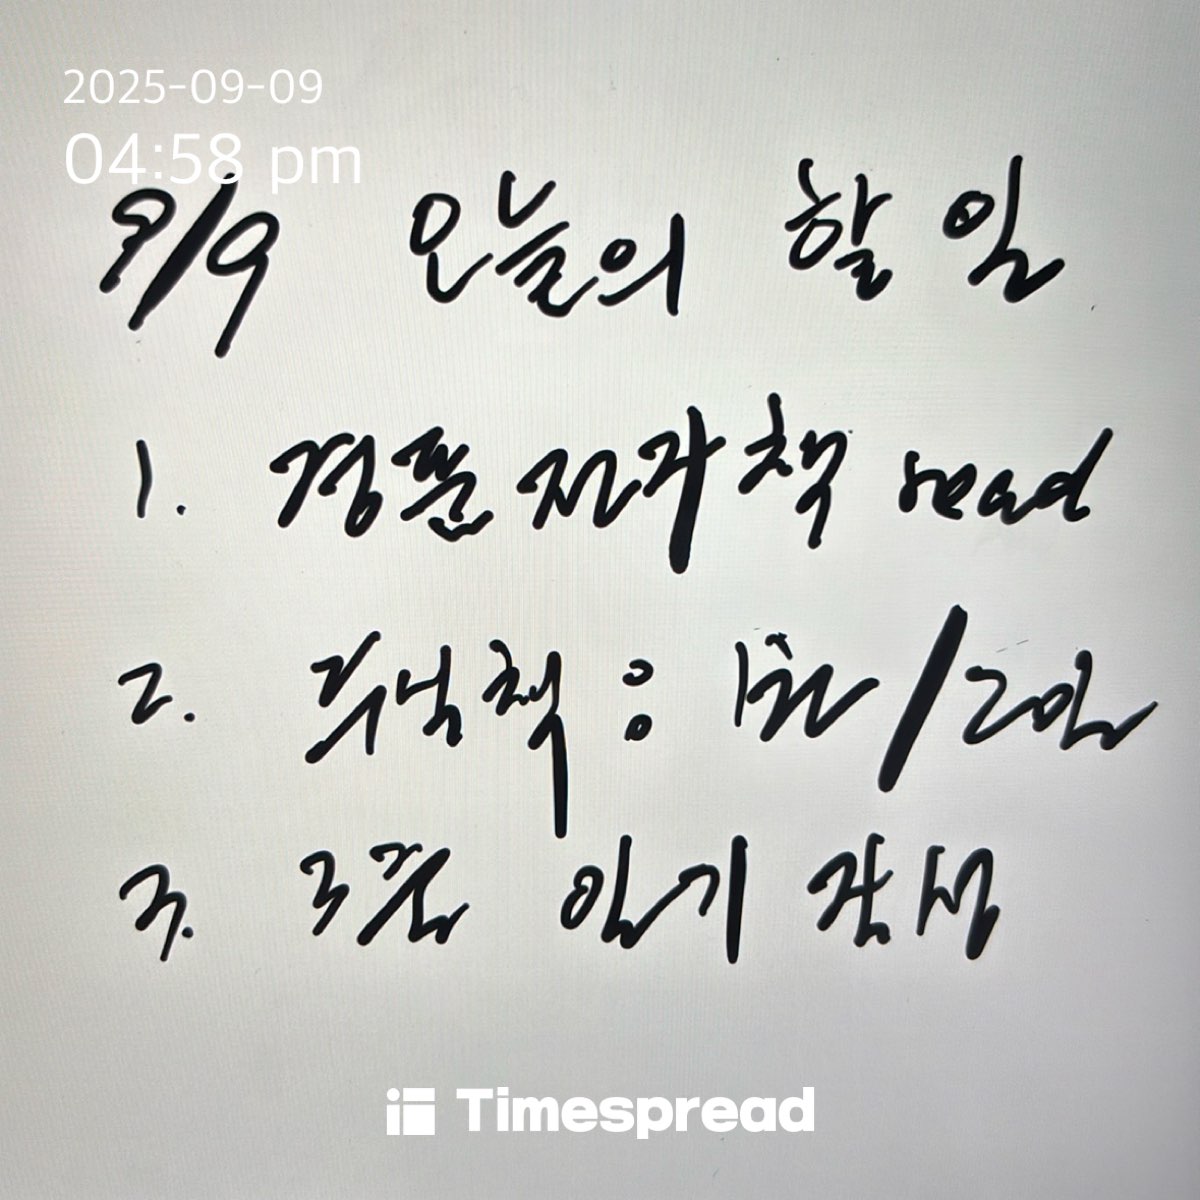 2025-09-09
04:58 pm
9/9 오늘의 할 일
1. 경품 전자책 read
2. 추석책 : 1권/2일
3. 3줄 일기 작성
Timespread